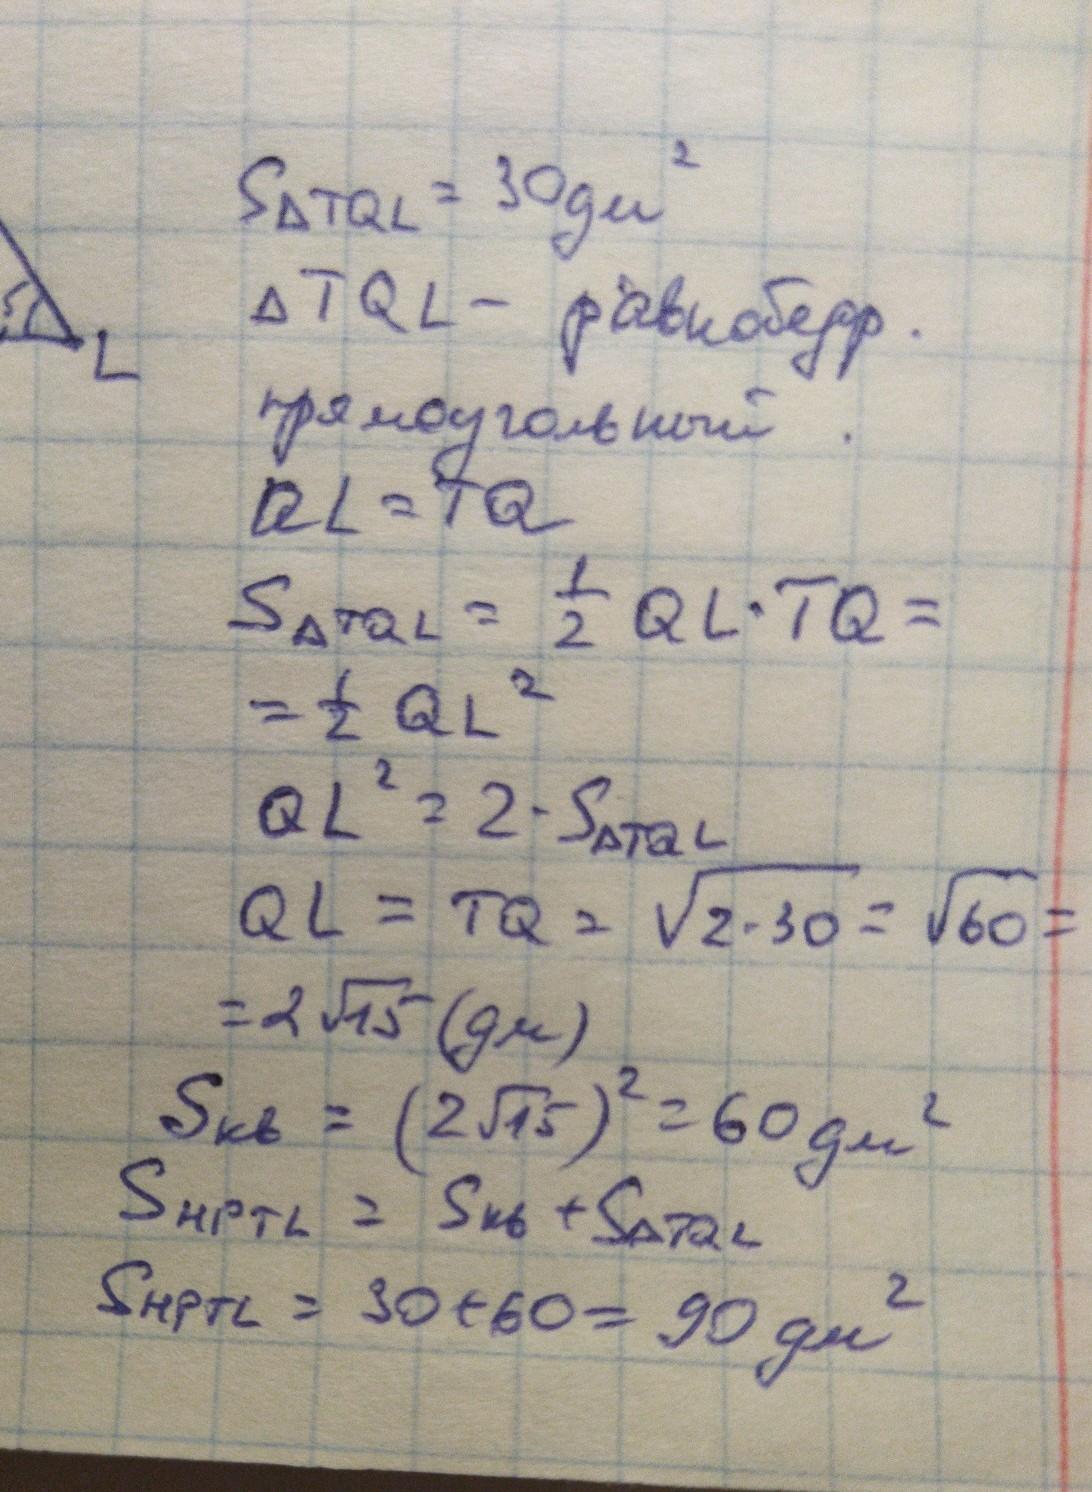 S△TQL = 30дм²
L
△TQL – равнобедр.
прямоугольный.
QL = TQ
S△TQL = 1/2 QL·TQ =
= 1/2 QL²
QL² = 2·S△TQL
QL = TQ = √2·30 = √60 =
= 2√15 (дм)
Sкв = (2√15)² = 60дм²
SHPTL = Sкв + S△TQL
SHPTL = 30+60 = 90дм²